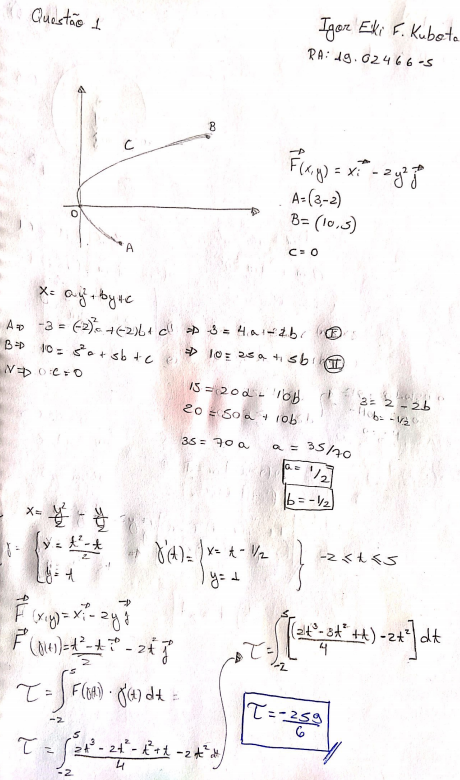 Questão 1
Igor Eiki F. Kubota
RA: 19.02466-5
B
C
O
A
F(x,y) = xi - 2y² j
A = (3-2)
B = (10,5)
C = 0
x = ay² + by + c
A => -3 = (-2)² + (-2)b + c => 3 = 4a - 2b I
B => 10 = 5²a + 5b + c => 10 = 25a + 5b II
N => 0 c = 0
15 = 20a - 10b
20 = 50a + 10b
3 = 2 - 2b
b = -1/2
35 = 70a a = 35/70
a = 1/2
b = -1/2
x = y²/2 - y/2
γ = { x = t² - t / 2 => γ'(t) = { x = t - 1/2 } -2 ≤ t ≤ 5
y = t y = 1
F(x,y) = xi - 2y j
F(γ(t)) = t² - t / 2 i - 2t² j
τ = ∫ -2 5 F(γ(t)) · γ'(t) dt =
τ = ∫ -2 5 2t³ - 2t² - t² + t / 4 - 2t² dt
τ = ∫ -2 5 [(2t³ - 3t² + t / 4) - 2t²] dt
τ = -259/6